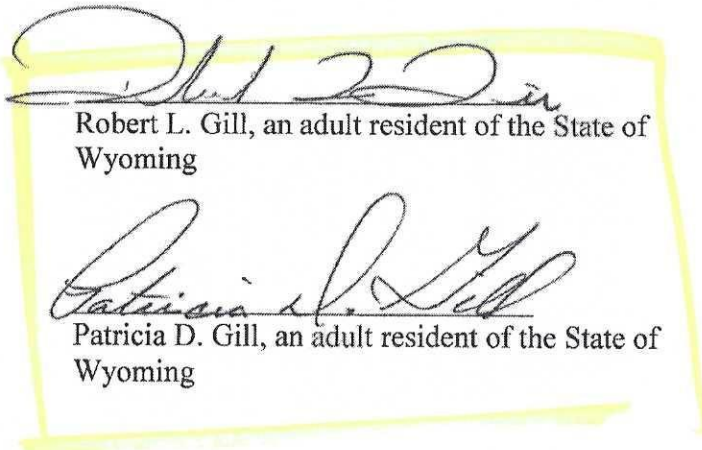 Robert L. Gill, an adult resident of the State of
Wyoming
Patricia D. Gill
Patricia D. Gill, an adult resident of the State of
Wyoming